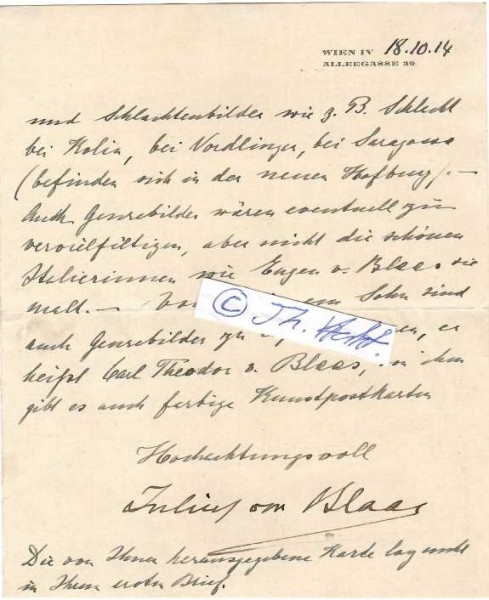 WIEN IV 18.10.14
ALLEEGASSE 39
und Schlachtenbilder wie z. B. Schlacht
bei Kolin, bei Nördlingen, bei Saragossa
(befinden sich in der neuen Hofburg). —
Auch Genrebilder wären eventuell zu
vervielfältigen, aber nicht die schönen
Italienerinnen wie Eugen v. Blaas sie
malt. — Sohn sind
auch Genrebilder zu er
heißt Carl Theodor v. Blaas,
gibt es auch farbige Kunstpostkarten
Hochachtungsvoll
Julius von Blaas
Die von Ihnen herausgegebene Karte lag nicht
in Ihrem ersten Brief.
© Th.